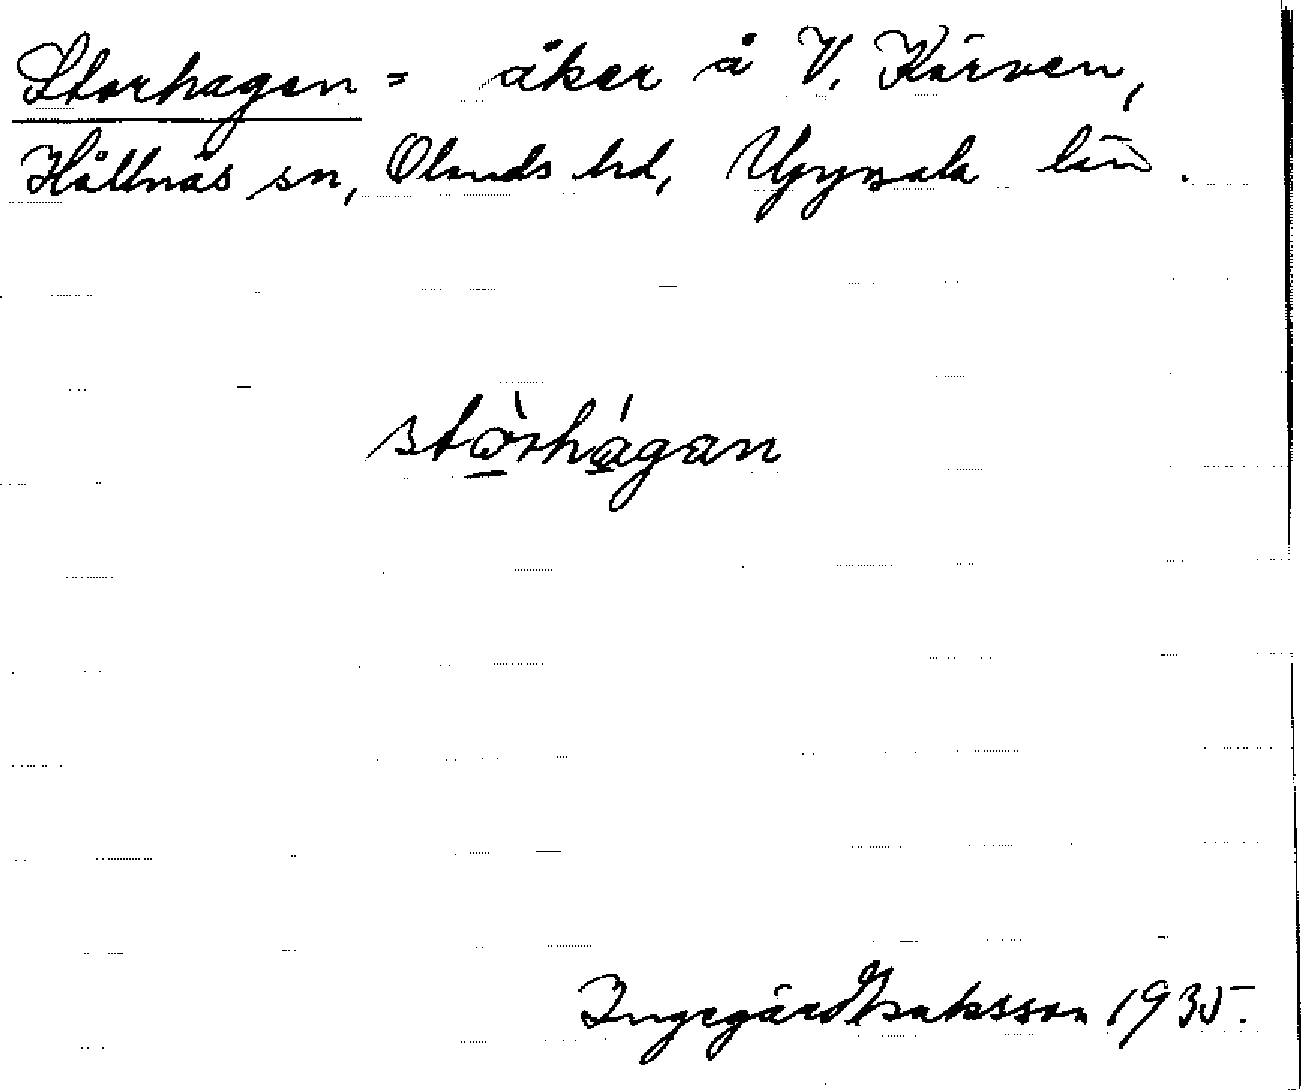 Storhagen = åker å V. Kärven,
Hållnäs sn, Olands hd, Uppsala län.
stòrhágan
Ingegärd Isaksson 1935.